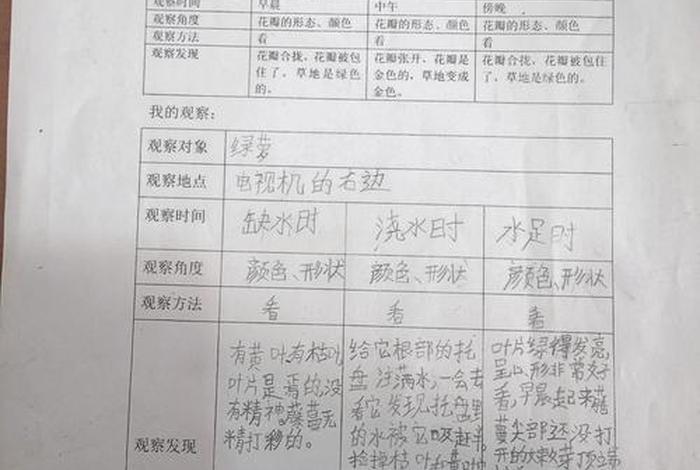 观察时间 早晨 中午 傍晚
观察角度 花瓣的形态、颜色 花瓣的形态、颜色 花瓣的形态、颜色
观察方法 看 看 看
观察发现 花瓣合拢，花瓣被包 花瓣张开，花瓣是 花瓣合拢，花瓣被包住
住了，草地是绿色 金色的，草地变成 了，草地是绿色的。
的。 金色。
我的观察：
观察对象 绿萝
观察地点 电视机的右边
观察时间 缺水时 浇水时 水足时
观察角度 颜色、形状 颜色、形状 颜色、形状
观察方法 看 看 看
观察发现
有黄叶有枯叶
叶片是蔫的，没
有精神，藤蔓无
精打彩的。
给它根部的托
盘注满水，一会去
看它发现托盘里
的水被它吸
捡掉枯叶和黄叶
叶片绿得发亮，
呈心形非常好
看，早晨起来藤
蔓尖部还没打
开的